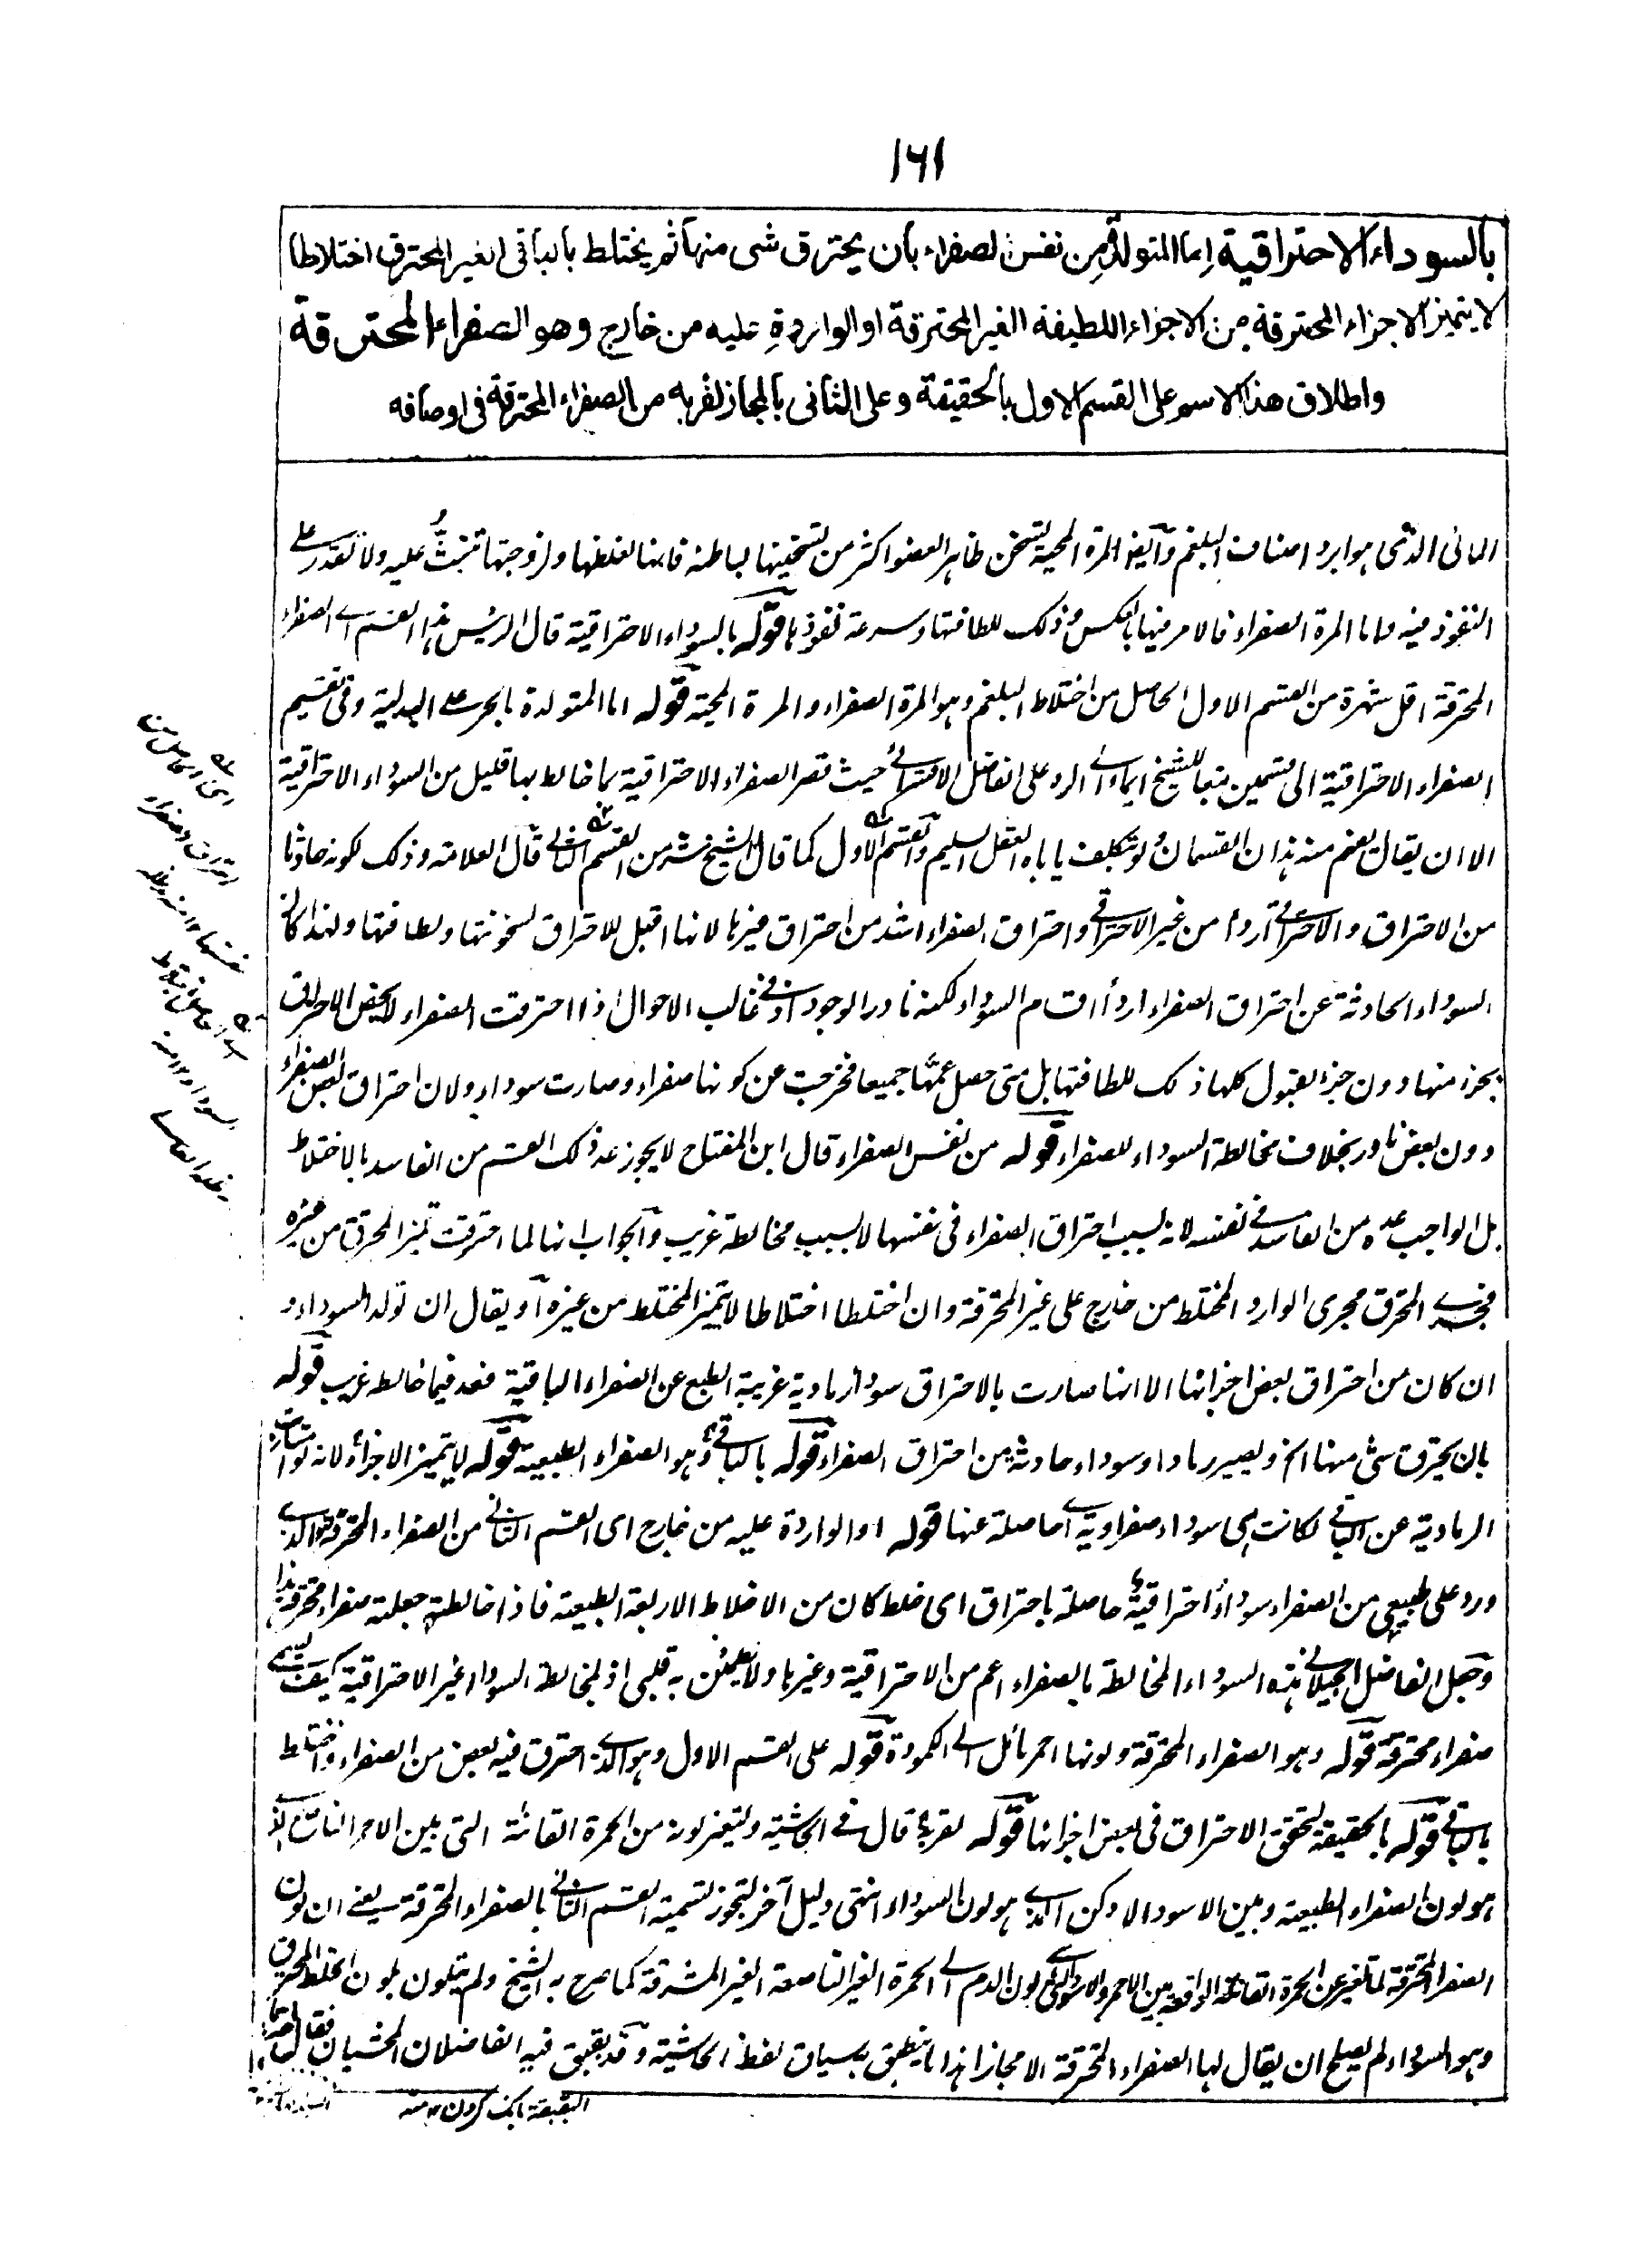 ١٦١
بالسوداء الاحتراقية إما المتولدة من نفس الصفراء بأن يحترق شئ منها ثم يختلط بالباقي الغير المحترق اختلاطا
لا يتميز الاجزاء المحترقة من الاجزاء اللطيفة الغير المحترقة او الواردة عليه من خارج وهو الصفراء المحترقة
واطلاق هذا الاسم على القسم الاول بالحقيقة وعلى الثانى بالمجاز لقربه من الصفراء المحترقة فى اوصافه
المائى الذى هو ابرد اصناف البلغم وآيضا المرة المحية تسخن ظاهر العضو اكثر من تسخينها لباطنه فانها لغلظها ولزوجتها تتشبث عليه ولا تقدر على
النفوذ فيه واما المرة الصفراء فالامر فيها بالعكس وذلك للطافتها وسرعة نفوذها قوله بالسوداء الاحتراقية قال الرئيس هذا القسم اے الصفراء
المحترقة اقل شهرة من القسم الاول الحاصل من اختلاط البلغم وهو المرة الصفراء والمرة المحية قوله اما المتولدة بالجر على البدلية وفى تقسيم
الصفراء الاحتراقية الى قسمين تبعا للشيخ ايماء الى الرد على الفاضل الاقسرائى حيث قصر الصفراء الاحتراقية بما خالط بها قليل من السوداء الاحتراقية
الا ان يقال يفهم منه هذان القسمان ولو بتكلف ياباه العقل السليم والقسم الاول كما قال الشيخ شر من القسم الثانى قال العلامة وذلك لكونه حادثا
من الاحتراق والاحتراقى اردأ من غير الاحتراقى واحتراق الصفراء اشد من احتراق غيرها لانها اقبل للاحتراق لسخونتها ولطافتها ولهذا كان
السوداء الحادثة عن احتراق الصفراء اردأ اقسام السوداء لكنه نادر الوجود اذ فى غالب الاحوال اذا احترقت الصفراء لا يختص الاحتراق
بجزء منها دون جزء لقبول كلها ذلك للطافتها بل متى حصل عمّها جميعا فخرجت عن كونها صفراء وصارت سوداء ولان احتراق بعض الصفراء
دون بعض نادر بخلاف مخالطة السوداء للصفراء قوله من نفس الصفراء قال ابن المفتاح لا يجوز عد ذلك القسم من الفاسد بالاختلاط
بل الواجب عده من الفاسد فى نفسه لانه بسبب احتراق الصفراء فى نفسها لا بسبب مخالطة غريب والجواب انها لما احترقت تميز المحترق من غيره
فجرى المحترق مجرى الوارد المختلط من خارج على غير المحترقة وان اختلطا اختلاطا لا يتميز المختلط من غيره او يقال ان تولد السوداء و
ان كان من احتراق بعض اجزائها الا انها صارت بالاحتراق سوداء رمادية غريبة الطبع عن الصفراء الباقية فعد فيما خالط غريب قوله
بان يحترق شئ منها الخ ويصير رمادا وسوداء حادثة من احتراق الصفراء قوله بالباقى وهو الصفراء الطبيعية قوله لا يتميز الاجزاء لانه لو امتازت
الرمادية عن الباقى لكانت هى سوداء صفراوية اے حاصلة عنها قوله او الواردة عليه من خارج اى القسم الثانى من الصفراء المحترقة هو الذى
ورد على طبيعى من الصفراء سوداء احتراقية حاصلة باحتراق اى خلط كان من الاخلاط الاربعة الطبيعية فاذا خالطته جعلته صفراء محترقة هذا
وجعل الفاضل الجيلانى هذه السوداء المخالطة بالصفراء اعم من الاحتراقية وغيرها ولا يطمئن به قلبى اذ لمخالطة السوداء الغير الاحتراقية كيف تسمى
صفراء محترقة قوله وهو الصفراء المحترقة ولونها احمر مائل الى الكمودة قوله على القسم الاول وهو الذى احترق فيه بعض من الصفراء واختلط
بالباقى قوله بالحقيقة لتحقق الاحتراق فى بعض اجزائها قوله لقربه قال فى الحاشية ولتغير لونه من الحمرة القانئة التى بين الاحمر الناصع الذى
هو لون الصفراء الطبيعية وبين الاسود الادكن الذى هو لون السوداء انتهى دليل آخر لتجوز تسمية القسم الثانى بالصفراء المحترقة يعنى ان لون
الصفراء المحترقة لما تغير عن الحمرة القانئة الواقعة بين الاحمر والاسود لون الدم الى الحمرة الغير الناصعة الغير المشرقة كما صرح به الشيخ ولم يتلون بلون الخلط المحترق
وهو السوداء لم يصلح ان يقال لها الصفراء المحترقة الا مجازا هذا ما ينطبق بسياق لفظ الحاشية وقد بقبق فيه الفاضلان المحشيان فقال
البقبقة بانگ كردن ١٢ منه